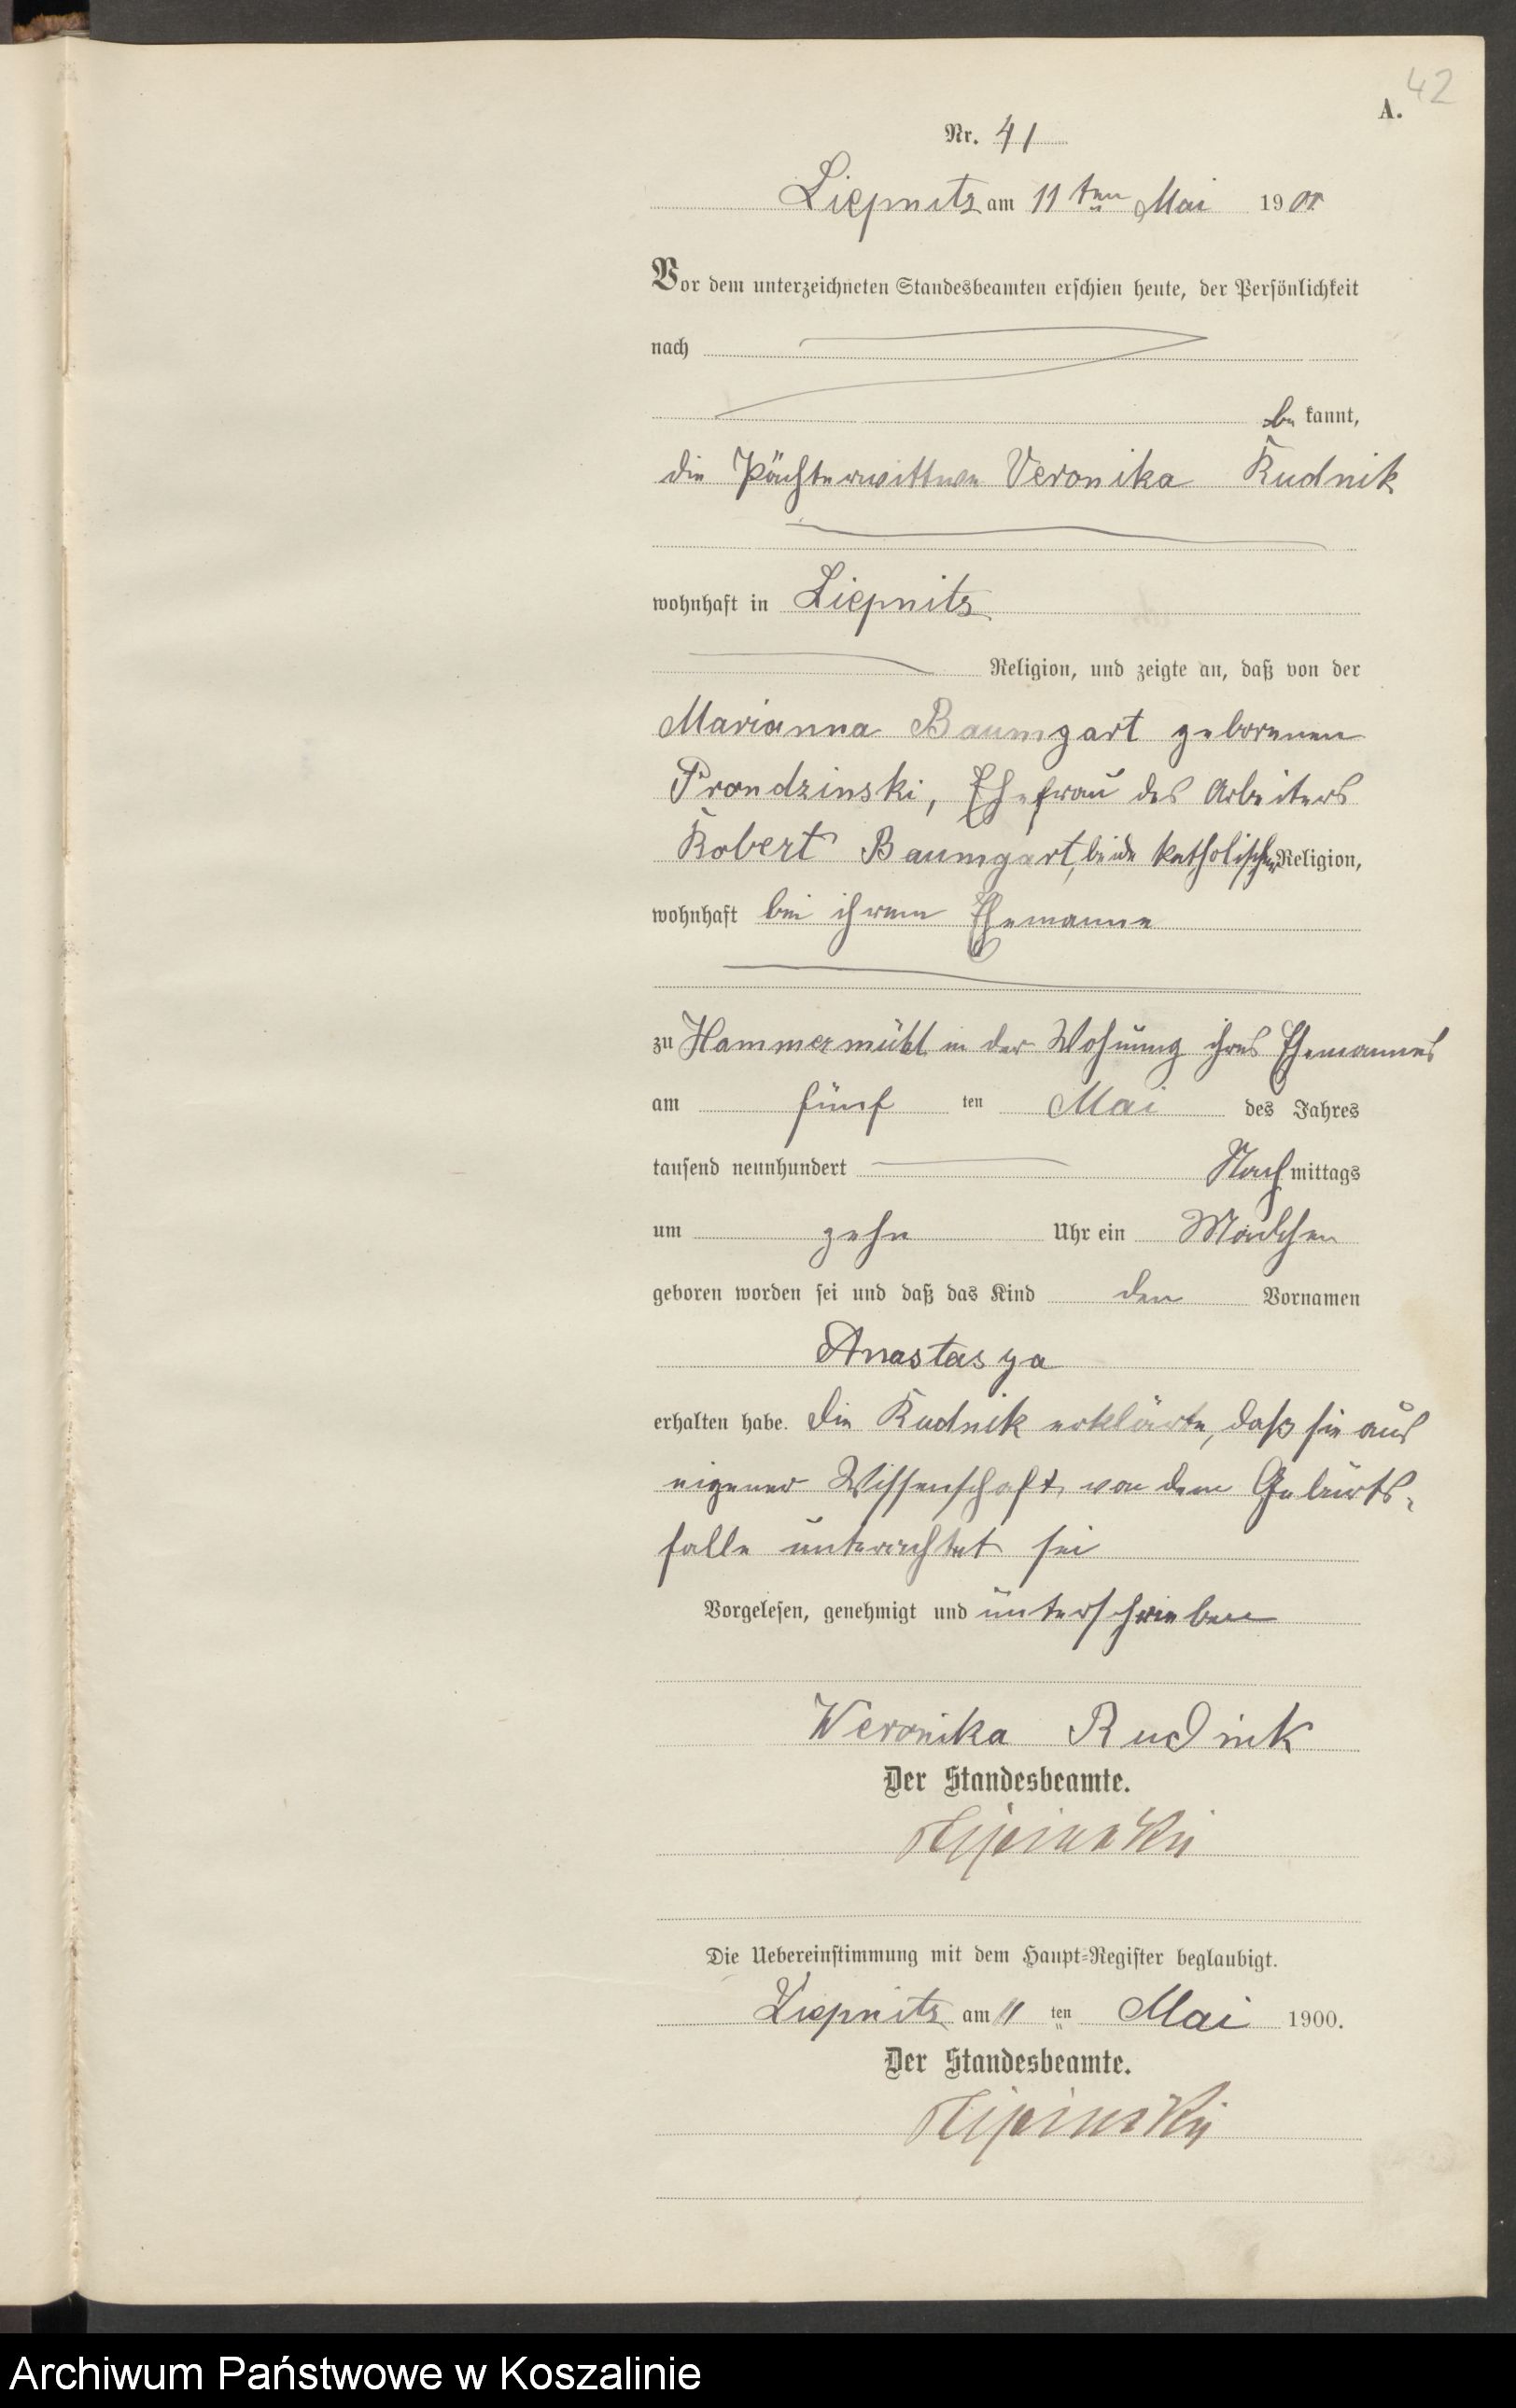 42
A.
Nr. 41
Liepnitz am 11ten Mai 1900
Vor dem unterzeichneten Standesbeamten erschien heute, der Persönlichkeit
nach
be kannt,
die Pächterwittwe Veronika Rudnik
wohnhaft in Liepnitz
Religion, und zeigte an, daß von der
Marianna Baumgart geborenen
Prondzinski, Ehefrau des Arbeiters
Robert Baumgart, beide katholischer Religion,
wohnhaft bei ihrem Ehemanne
zu Hammermühl in der Wohnung ihres Ehemannes
am fünf ten Mai des Jahres
tausend neunhundert Nach mittags
um zehn Uhr ein Mädchen
geboren worden sei und daß das Kind den Vornamen
Anastasya
erhalten habe. Die Rudnik erklärte, daß sie aus
eigener Wissenschaft von dem Geburts-
falle unterrichtet sei
Vorgelesen, genehmigt und unterschrieben
Weronika Rudnik
Der Standesbeamte.
Lipinski
Die Uebereinstimmung mit dem Haupt-Register beglaubigt.
Liepnitz am 11 ten Mai 1900.
Der Standesbeamte.
Lipinski
Archiwum Państwowe w Koszalinie